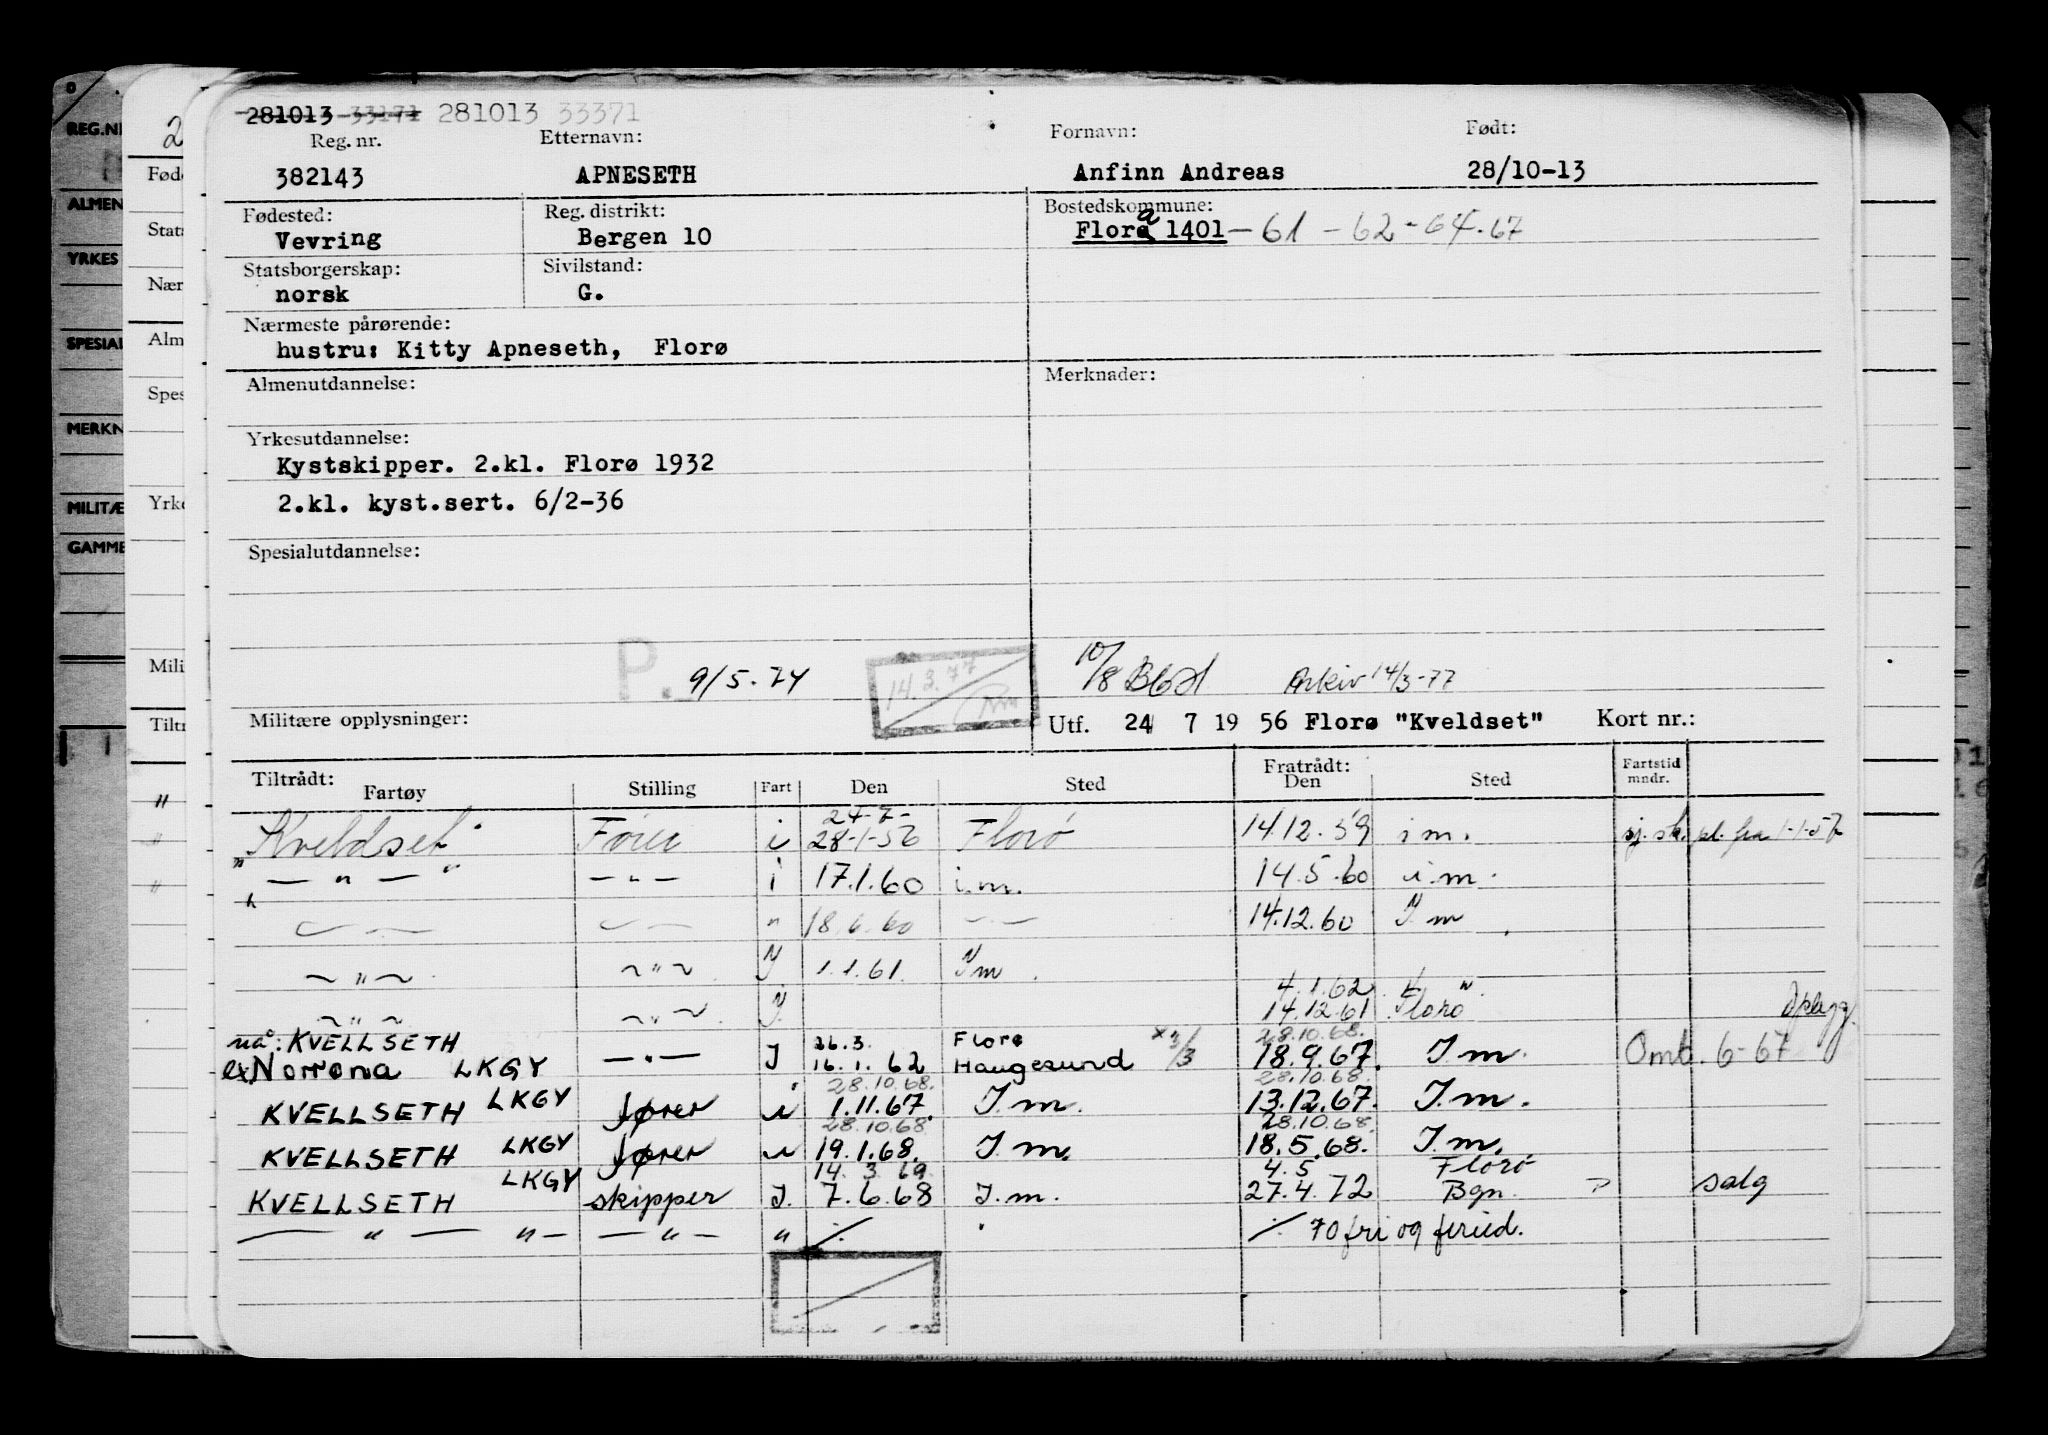 281013 33171 281013 33371
Reg. nr. Etternavn: Fornavn: Født:
382143 APNESETH Anfinn Andreas 28/10-13
Fødested: Reg. distrikt: Bostedskommune:
Vevring Bergen 10 Flora 1401 - 61 - 62 - 64. 67
Statsborgerskap: Sivilstand:
norsk G.
Nærmeste pårørende:
hustru: Kitty Apneseth, Florø
Almenutdannelse: Merknader:
Yrkesutdannelse:
Kystskipper. 2.kl. Florø 1932
2.kl. kyst.sert. 6/2-36
Spesialutdannelse:
P. 9/5-74 14.3.77 10/8 Arkiv 14/3-77
Militære opplysninger: Utf. 24 7 19 56 Florø "Kveldset" Kort nr.:
Tiltrådt: Fratrådt: Fartstid mndr.
Fartøy Stilling Fart Den Sted Den Sted
24-7-
"Kveldset" Fører i 28-1-56 Florø 14.12.59 i m. sj. sk. pl. fra 1-1-57
— " — — " — i 17.1.60 i.m. 14.5.60 i.m.
" 18.6.60 14.12.60 I m
~ " ~ ~ " ~ I 1.1.61. I m.
4.1.62
~ " ~ ~ " ~ I. 14.12.61 Florø Opplagg.
nå: KVELLSETH 26.3. Florø 28.10.68.
ex Norrøna LKGY — " — I 16.1.62 Haugesund x 3/3 18.9.67. I m. Omb. 6-67
28.10.68. 28.10.68
KVELLSETH LKGY fører i 1.11.67. I.m. 13.12.67. I.m.
28.10.68 28.10.68.
KVELLSETH LKGY fører i 19.1.68. I.m. 18.5.68. I.m.
14.3.69 4.5 Florø
KVELLSETH LKGY skipper I. 7.6.68 I.m. 27.4.72 Bgn. salg
— " — " — — " — " ./. ./. 70 fri og feried.